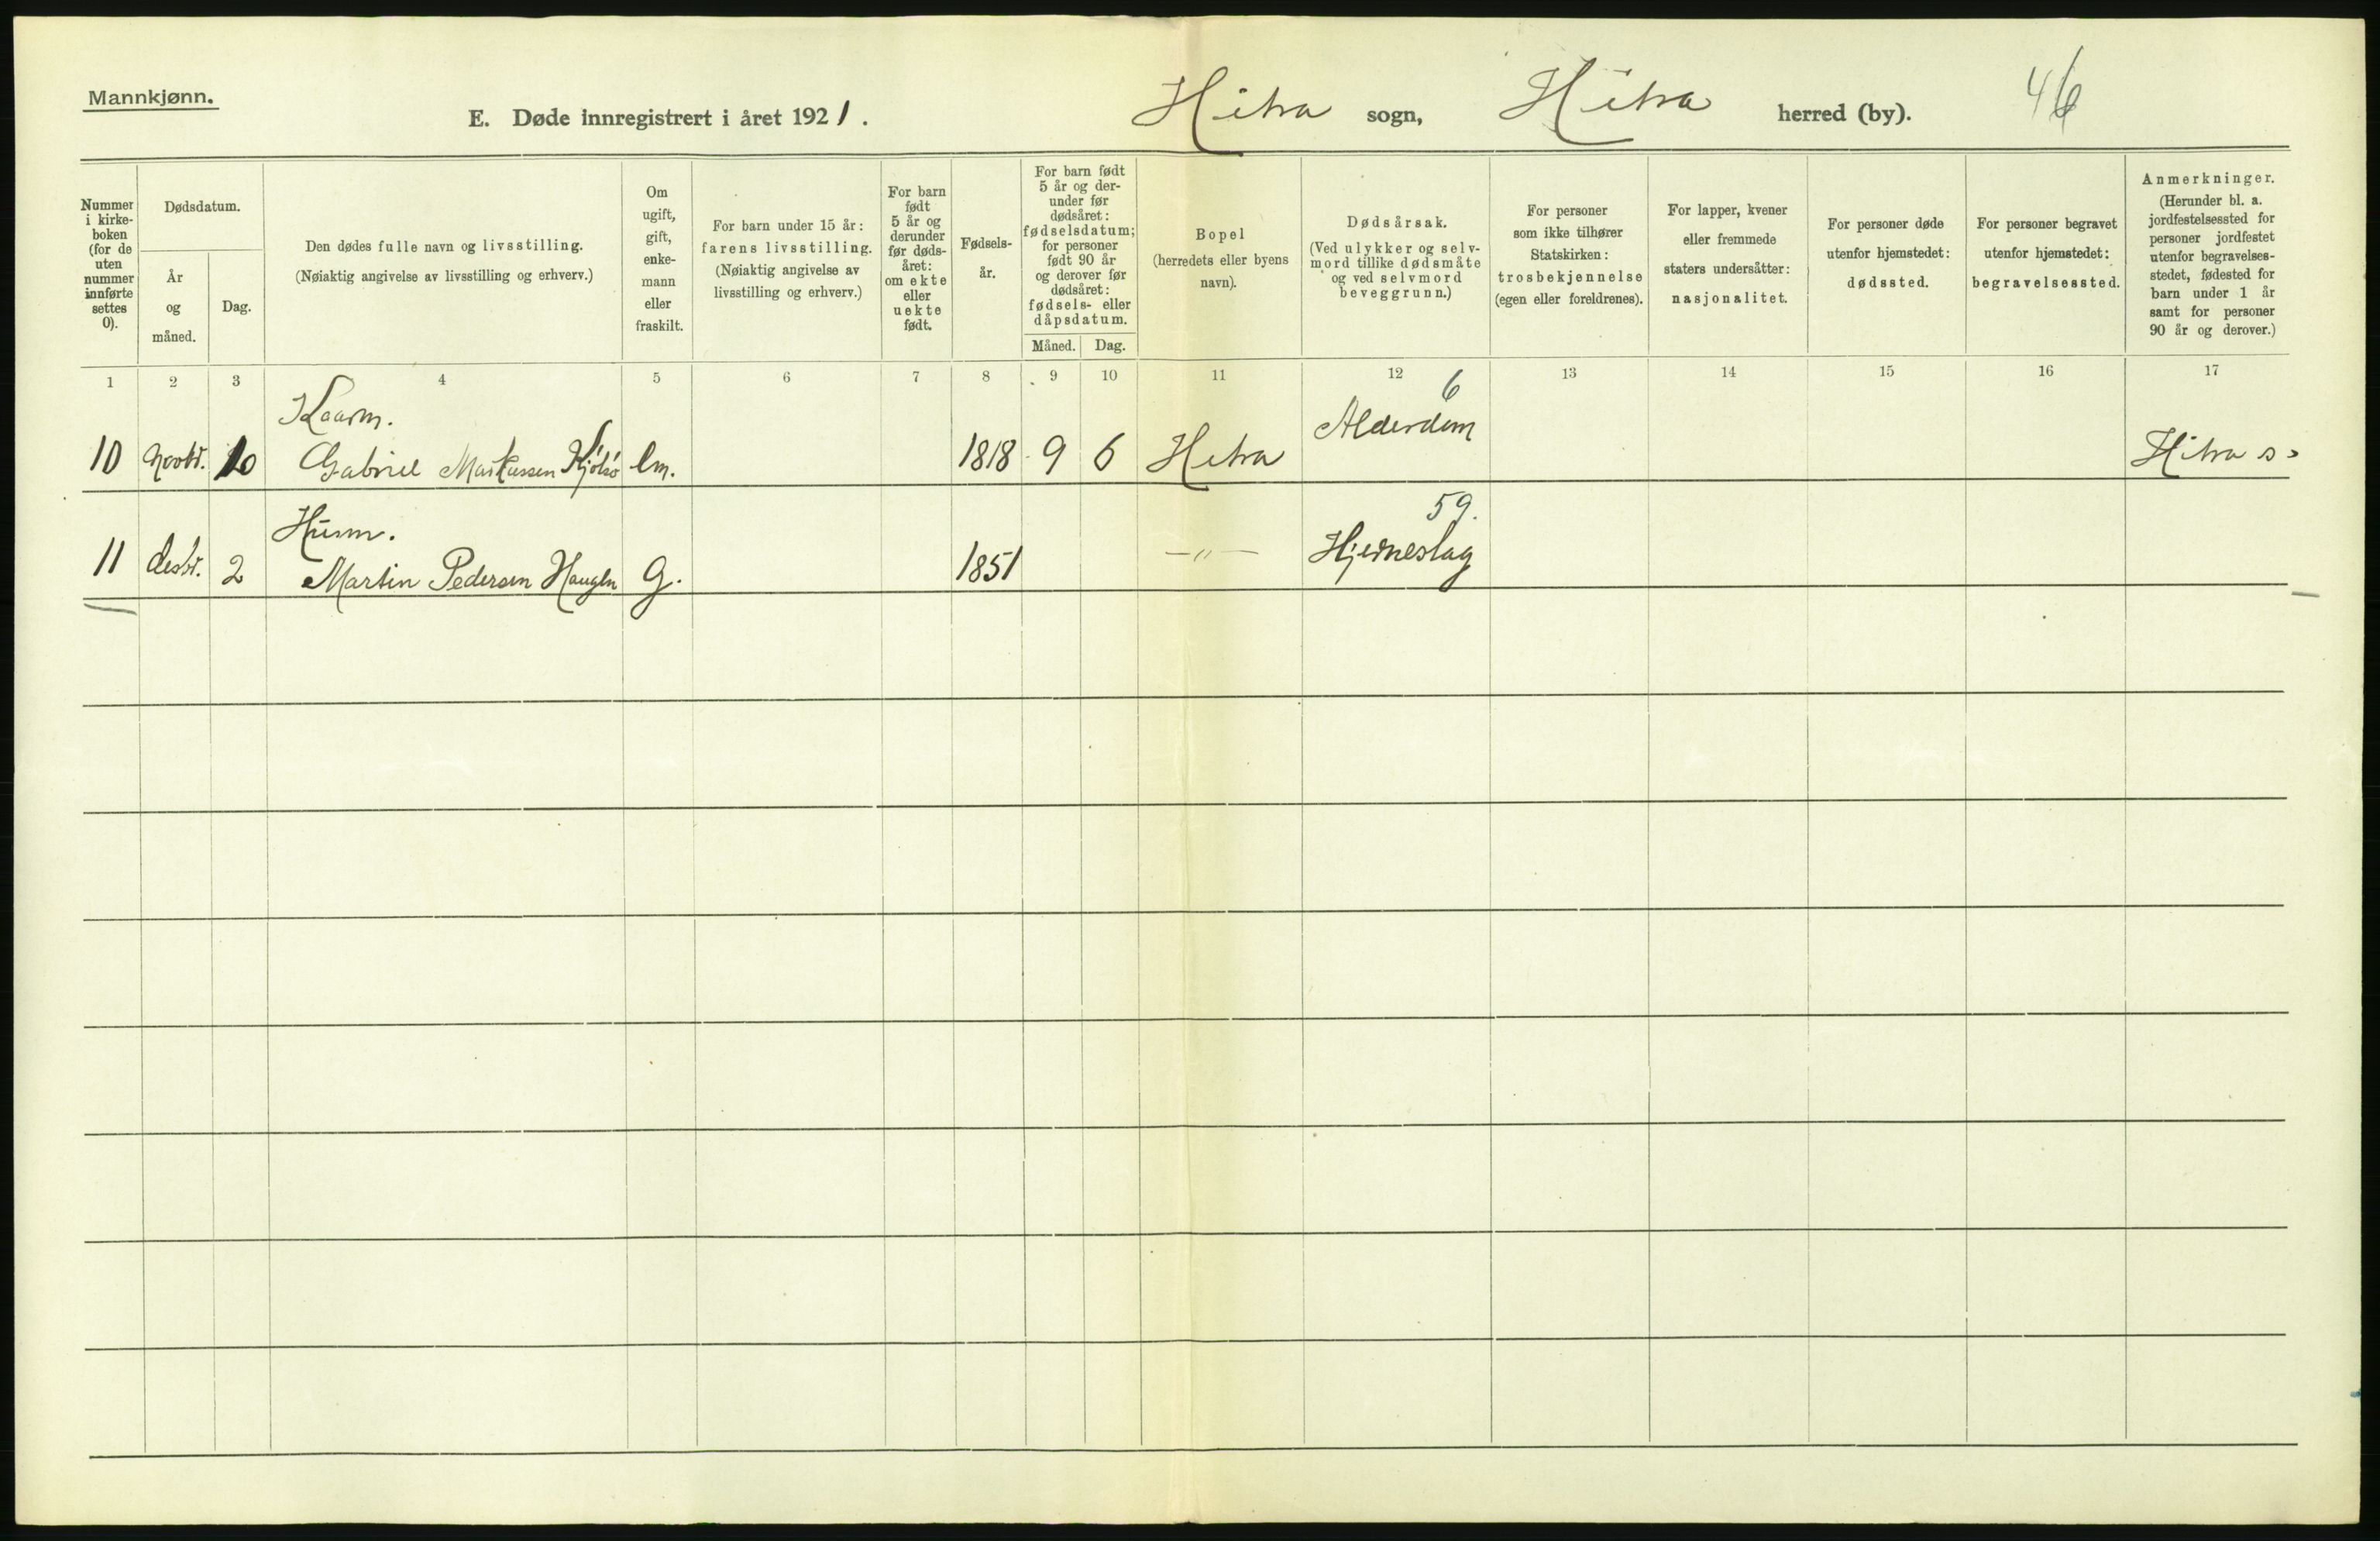 Mannkjønn.
E. Døde innregistrert i året 1921. Hitra sogn, Hitra herred (by). 46
Nummer
i kirke-
boken
(for de
uten
nummer
innførte
settes
0).
Dødsdatum.
År
og
måned.
Dag.
Den dødes fulle navn og livsstilling.
(Nøiaktig angivelse av livsstilling og erhverv.)
Om
ugift,
gift,
enke-
mann
eller
fraskilt.
For barn under 15 år:
farens livsstilling.
(Nøiaktig angivelse av
livsstilling og erhverv.)
For barn
født
5 år og
derunder
før døds-
året:
om ekte
eller
uekte
født.
Fødsels-
år.
For barn født
5 år og der-
under før
dødsåret:
fødselsdatum;
for personer
født 90 år
og derover før
dødsåret:
fødsels- eller
dåpsdatum.
Måned. Dag.
Bopel
(herredets eller byens
navn).
Dødsårsak.
(Ved ulykker og selv-
mord tillike dødsmåte
og ved selvmord
beveggrunn.)
For personer
som ikke tilhører
Statskirken:
trosbekjennelse
(egen eller foreldrenes).
For lapper, kvener
eller fremmede
staters undersåtter:
nasjonalitet.
For personer døde
utenfor hjemstedet:
dødssted.
For personer begravet
utenfor hjemstedet:
begravelsessted.
Anmerkninger.
(Herunder bl. a.
jordfestelsessted for
personer jordfestet
utenfor begravelses-
stedet, fødested for
barn under 1 år
samt for personer
90 år og derover.)
1 2 3 4 5 6 7 8 9 10 11 12 13 14 15 16 17
Kaarm. 6
10 Novbr. 10 Gabriel Markussen Kjølsø Em. 1818 9 6 Hitra Alderdom Hitra s
Husm. 59.
11 desbr. 2 Martin Pedersen Haugen G. 1851 —„— Hjerneslag